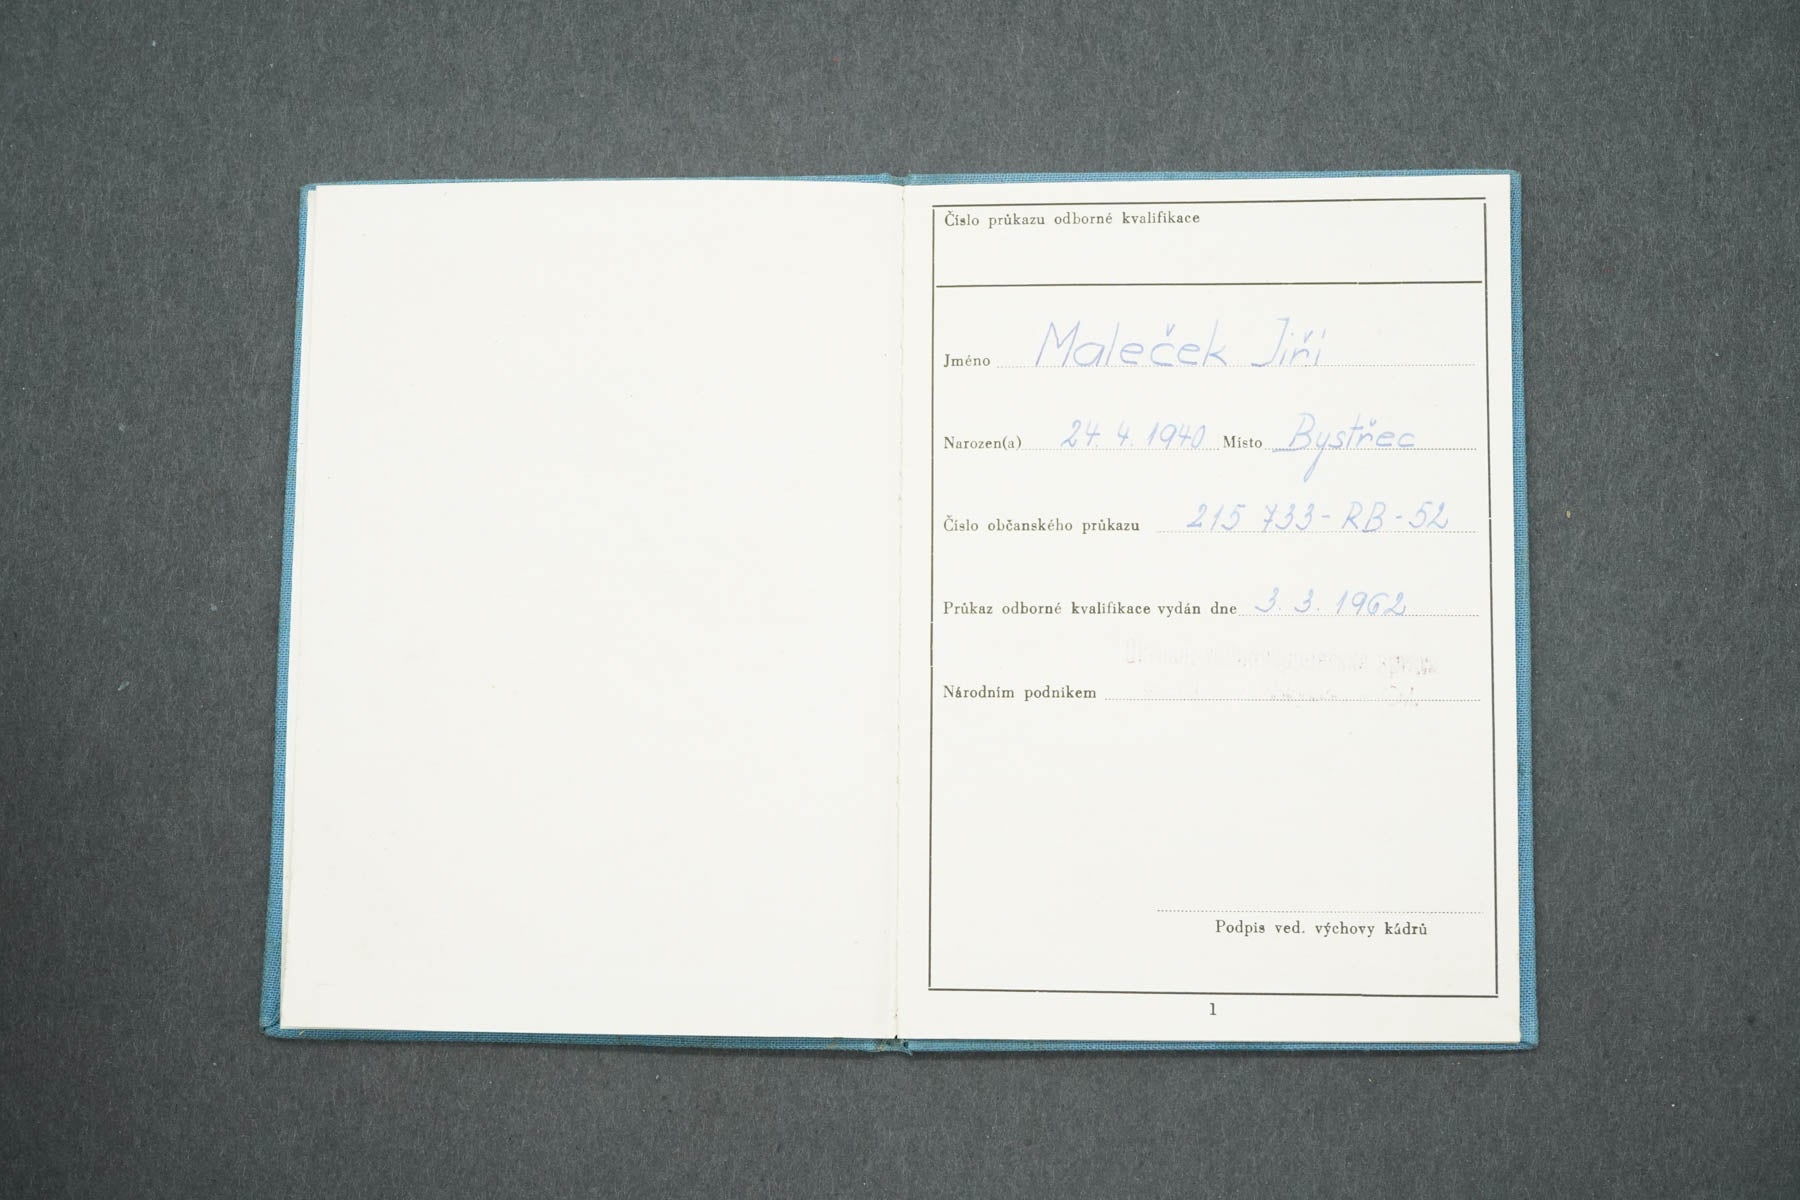 Číslo průkazu odborné kvalifikace
Jméno Maleček Jiří
Narozen(a) 24. 4. 1940 Místo Bystřec
Číslo občanského průkazu 215 733 - RB - 52
Průkaz odborné kvalifikace vydán dne 3. 3. 1962
Národním podnikem
Podpis ved. výchovy kádrů
1